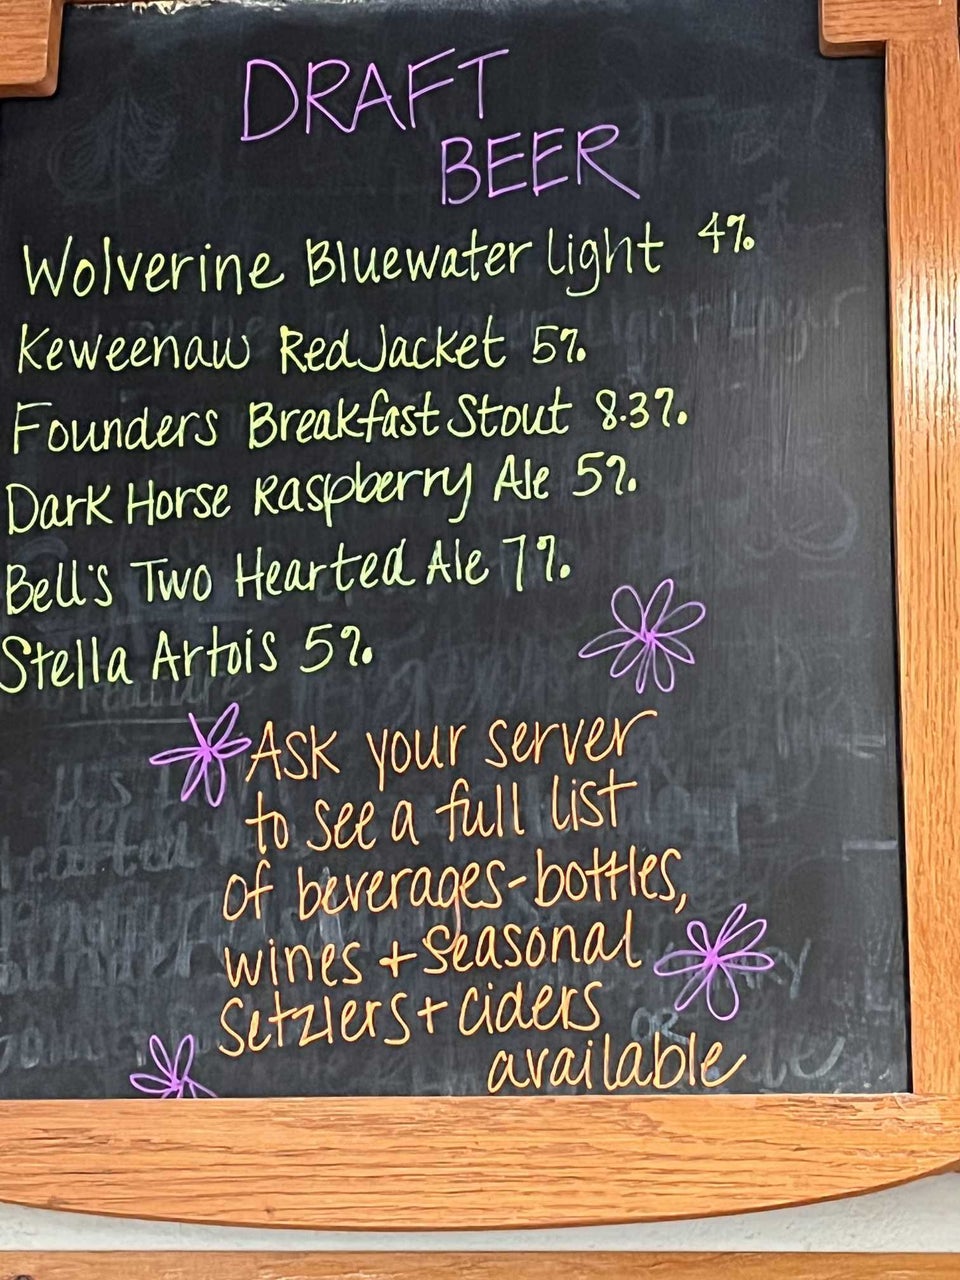 DRAFT
BEER
Wolverine Bluewater Light 4%
Keweenaw Red Jacket 5%
Founders Breakfast Stout 8.3%
Dark Horse Raspberry Ale 5%
Bell's Two Hearted Ale 7%
Stella Artois 5%
Ask your server
to see a full list
of beverages-bottles,
wines + seasonal
Setzlers + ciders
available